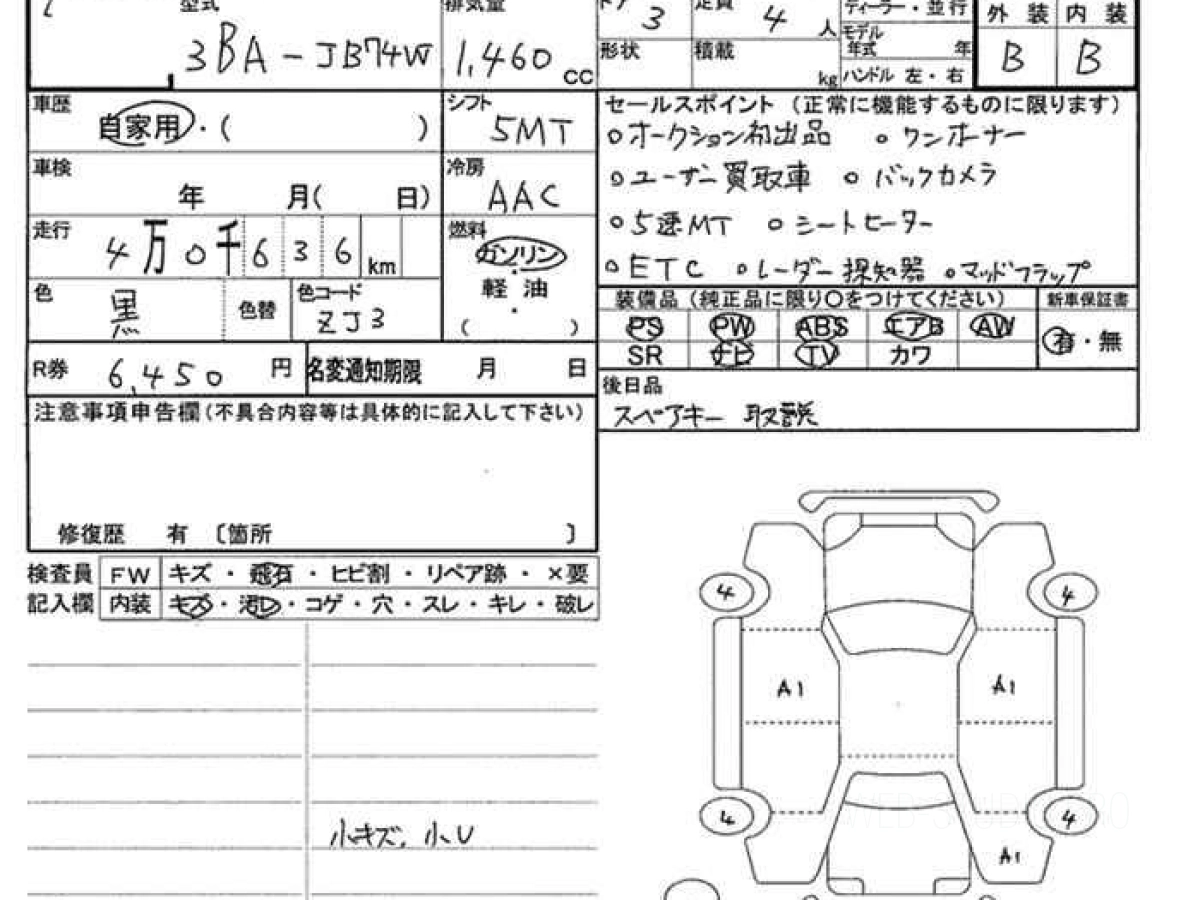 型式 排気量 ドア 3 定員 4 人 ディーラー・並行 外装 内装
3BA-JB74W 1,460 cc 形状 積載 kg モデル年式 年 B B
ハンドル 左・右
車歴 自家用・( ) シフト 5MT セールスポイント (正常に機能するものに限ります)
○オークション初出品 ○ワンオーナー
車検 年 月( 日) 冷房 AAC ○ユーザー買取車 ○バックカメラ
走行 4万0千636km 燃料 ガソリン・軽油・( ) ○5速MT ○シートヒーター
○ETC ○レーダー探知器 ○マッドフラップ
色 黒 色替 色コード ZJ3 装備品(純正品に限り○をつけてください) 新車保証書
PS PW ABS エアB AW 有・無
SR ナビ TV カワ
R券 6,450円 名変通知期限 月 日 後日品
スペアキー 取説
注意事項申告欄(不具合内容等は具体的に記入して下さい)
修復歴 有 〔箇所 〕
検査員 FW キズ・飛石・ヒビ割・リペア跡・×要
記入欄 内装 キズ・汚レ・コゲ・穴・スレ・キレ・破レ
4 4
A1 A1
4 4
小キズ, 小U
A1